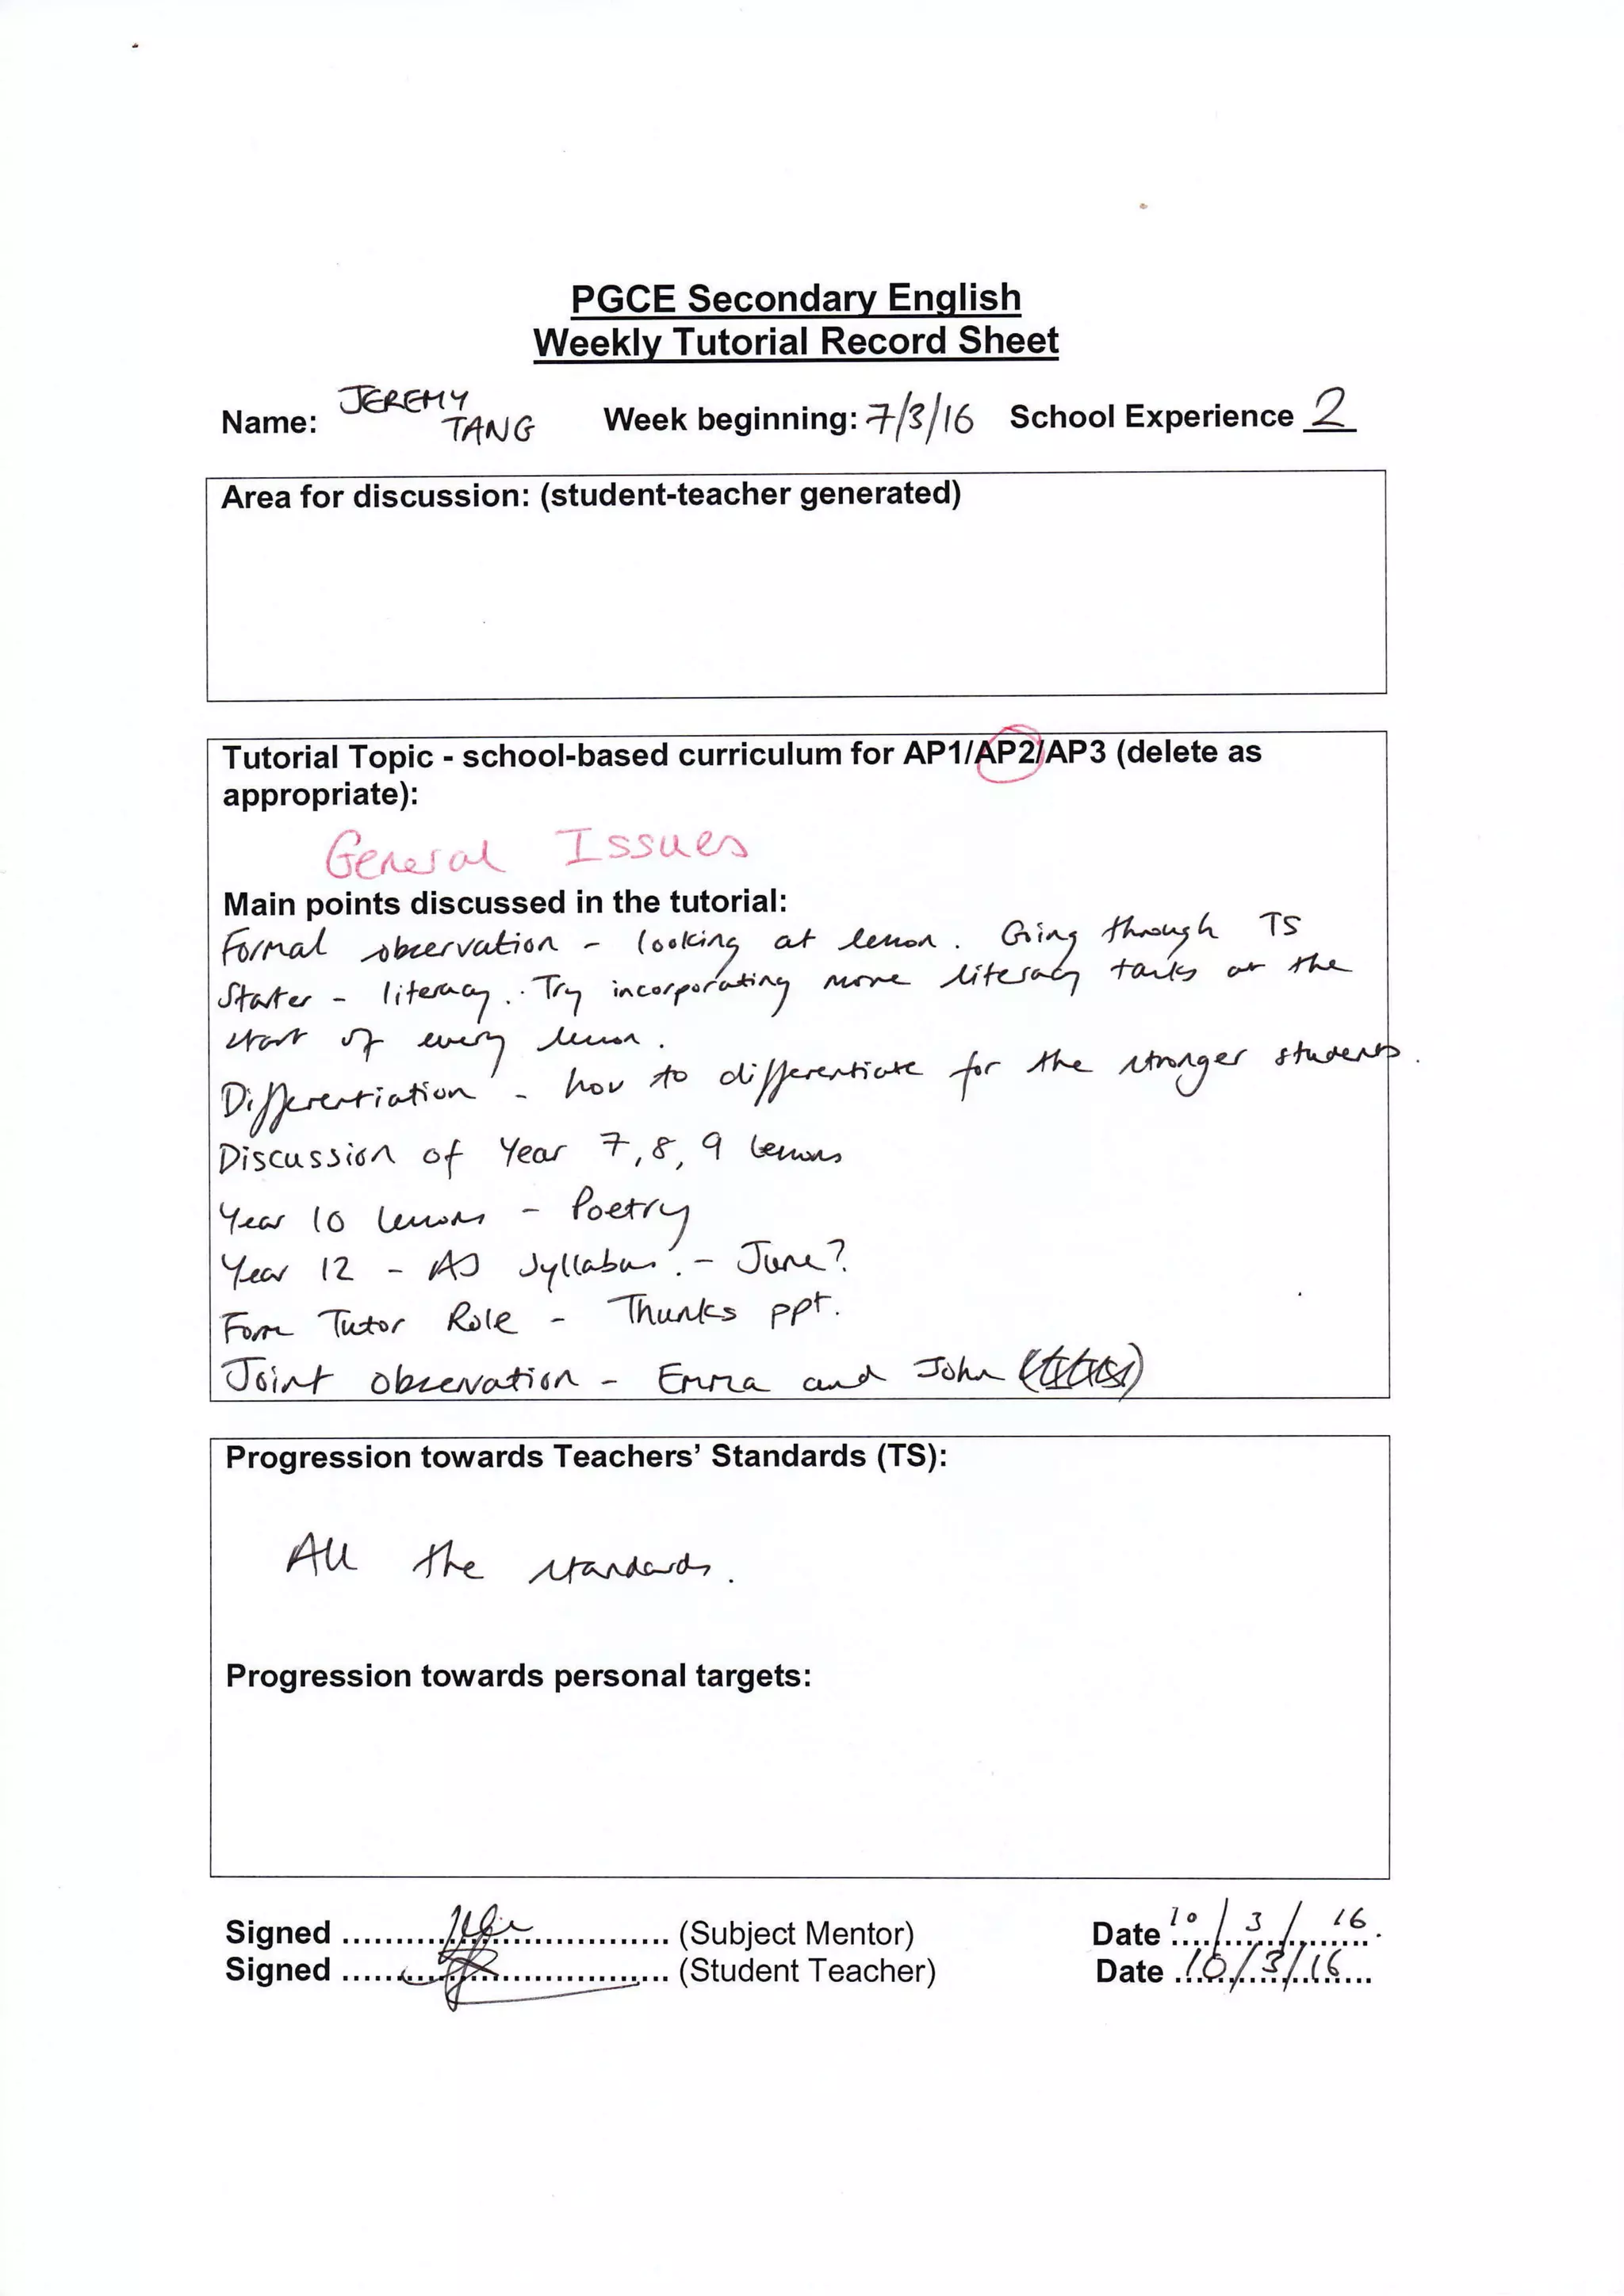 PGCE Secondary English
Weekly Tutorial Record Sheet
Name: JEREMY TANG Week beginning: 7/3/16 School Experience 2
Area for discussion: (student-teacher generated)
Tutorial Topic - school-based curriculum for AP1/AP2/AP3 (delete as
appropriate):
General Issues
Main points discussed in the tutorial:
Formal observation - looking at lesson. Going through TS
Starter - literacy. Try incorporating more literacy tasks at the
start of every lesson.
Differentiation - how to differentiate for the stronger students.
Discussion of Year 7, 8, 9 lessons
Year 10 lessons - Poetry
Year 12 - AS Syllabus. - June?
Form Tutor Role - Thunks ppt.
Joint observation - Emma and John
Progression towards Teachers' Standards (TS):
All the standards.
Progression towards personal targets:
Signed .................................. (Subject Mentor) Date 10/3/16.
Signed .................................. (Student Teacher) Date 10/3/16